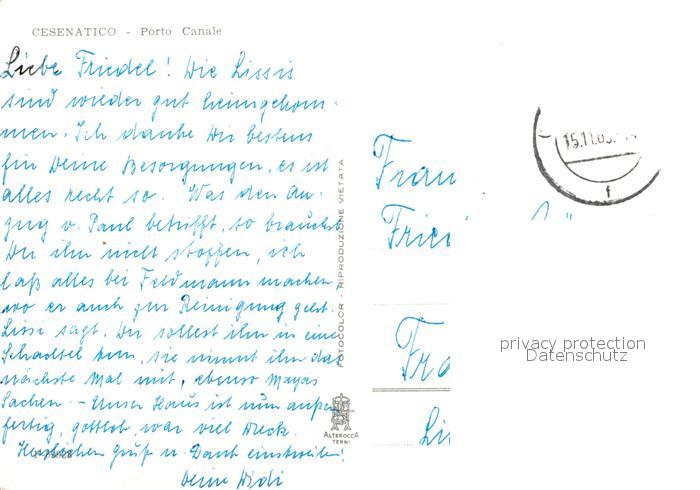 CESENATICO - Porto Canale
Liebe Friedel! Die Lissis
sind wieder gut heimgekom-
men. Ich danke Dir bestens
für Deine Besorgungen, es ist
alles recht so. Was den An-
zug v. Paul betrifft, so brauchst
Du ihn nicht stopfen, ich
laß alles bei Feldmann machen,
wo er auch zur Reinigung geht.
Lissi sagt, Du sollest ihn in eine
Schachtel tun, sie nimmt ihn das
nächste Mal mit, ebenso
Sachen. - Unser Haus ist nun außen
fertig, gottlob, war viel Dreck.
Herzlichen Gruß u. Dank einstweilen!
Deine
FOTOCOLOR - RIPRODUZIONE VIETATA
ALTEROCCA
TERNI
15.11.6
f
Frau
Fried
Fra
Li
privacy protection
Datenschutz